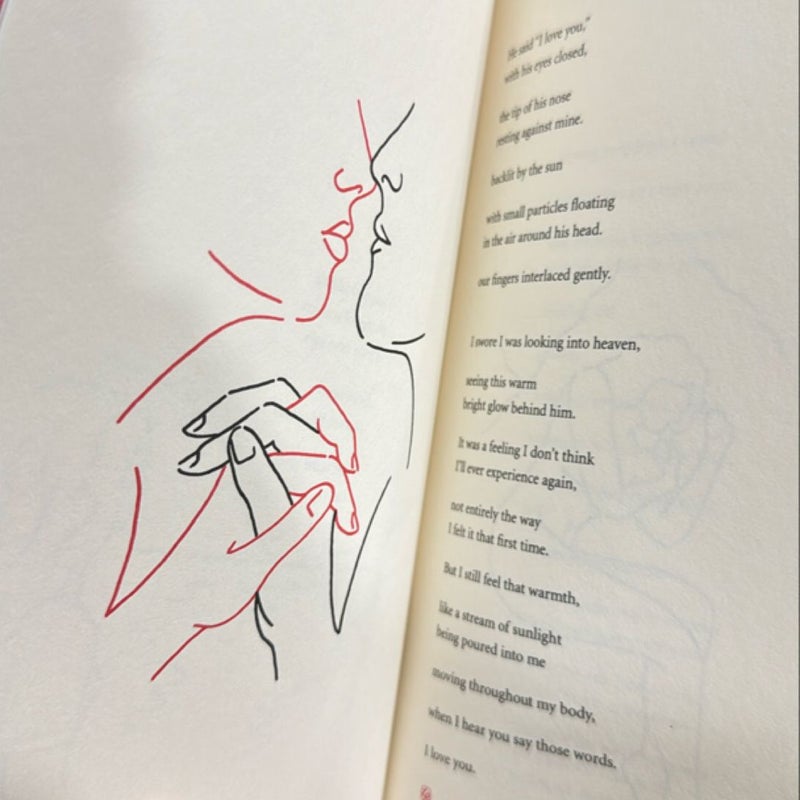 He said "I love you,"
with his eyes closed,
the tip of his nose
resting against mine.
backlit by the sun
with small particles floating
in the air around his head.
our fingers interlaced gently.
I swore I was looking into heaven,
seeing this warm
bright glow behind him.
It was a feeling I don't think
I'll ever experience again,
not entirely the way
I felt it that first time.
But I still feel that warmth,
like a stream of sunlight
being poured into me
moving throughout my body,
when I hear you say those words.
I love you.